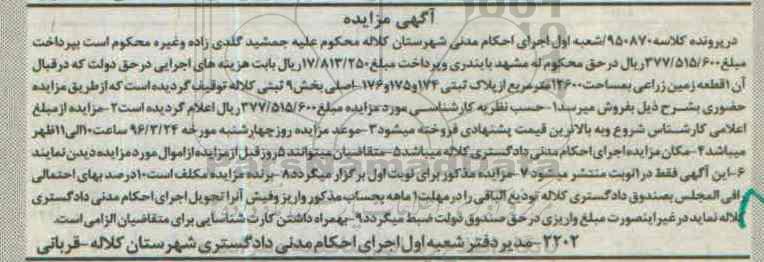 آگهی مزایده
در پرونده کلاسه ۹۵۰۸۷۰/شعبه اول اجرای احکام مدنی شهرستان کلاله محکوم علیه جمشید گلدی زاده وغیره محکوم است بپرداخت
مبلغ ۳۷۷/۵۱۵/۶۰۰ریال در حق محکوم له مشهد بایندری وپرداخت مبلغ ۱۷/۸۱۳/۲۵۰ریال بابت هزینه های اجرایی درحق دولت که درقبال
آن ۱قطعه زمین زراعی بمساحت ۱۲۶۰۰متر مربع از پلاک ثبتی ۱۷۴و۱۷۵و۱۷۶-اصلی بخش۹ ثبتی کلاله توقیف گردیده است که ازطریق مزایده
حضوری بشرح ذیل بفروش میرسد۱- حسب نظریه کارشناسی مورد مزایده مبلغ ۳۷۷/۵۱۵/۶۰۰ریال اعلام گردیده است۲-مزایده ازمبلغ
اعلامی کارشناس شروع وبه بالاترین قیمت پیشنهادی فروخته میشود۳-موعد مزایده روز چهارشنبه مورخه ۹۶/۳/۲۴ ساعت ۱۰الی۱۱ظهر
میباشد۴-مکان مزایده اجرای احکام مدنی دادگستری کلاله میباشد۵-متقاضیان میتوانند ۵روز قبل از مزایده ازاموال مورد مزایده دیدن نمایند
۶-این آگهی فقط در۱نوبت منتشر میشود۷-مزایده مذکور برای نوبت اول برگزار میگردد۸-برنده مزایده مکلف است۱۰درصد بهای احتمالی
رافی المجلس بصندوق دادگستری کلاله تودیع الباقی را در مهلت۱ماهه بحساب مذکور واریز وفیش آنرا تحویل اجرای احکام مدنی دادگستری
کلاله نماید در غیر اینصورت مبلغ واریزی در حق صندوق دولت ضبط میگردد۹-بهمراه داشتن کارت شناسایی برای متقاضیان الزامی است.
۲۲۰۲-مدیر دفتر شعبه اول اجرای احکام مدنی دادگستری شهرستان کلاله -قربانی